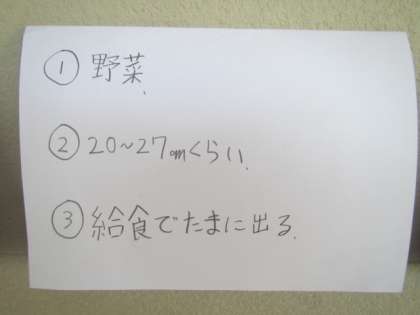 ① 野菜.
② 20~27cmくらい.
③ 給食でたまに出る.